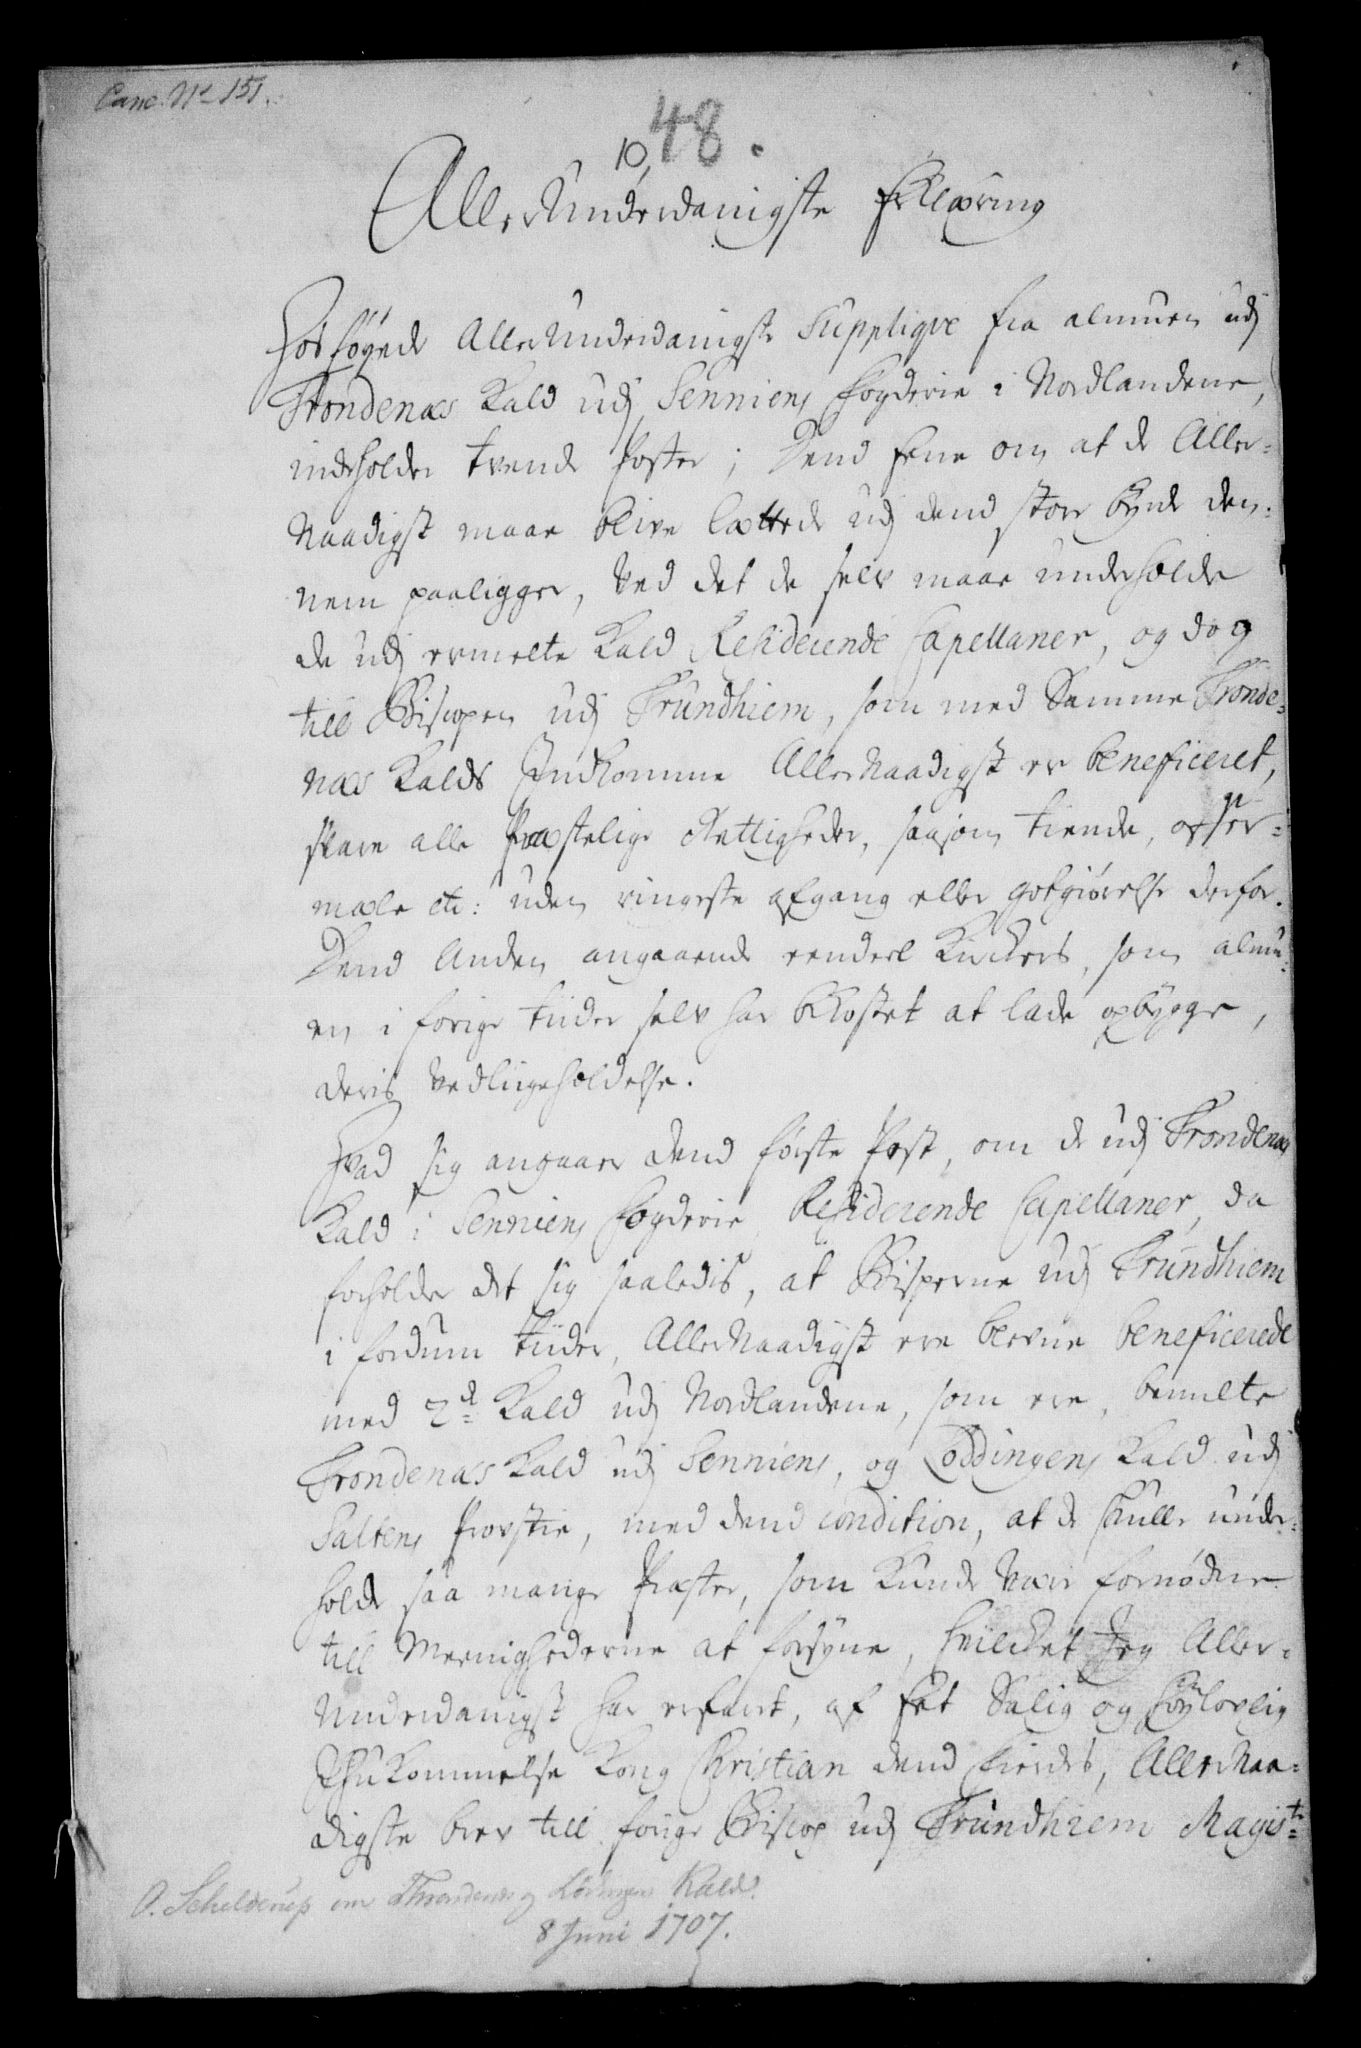 Canc. No 151.
48.
10,
AllerUnderdanigste Erklæring
Hosføyede AllerUnderdanigste Supplique fra almuen udj
Trondenæs Kald udj Senniens fogderie i Nordlandene,
indeholder tvende Poster; Dend eene om at de Aller-
Naadigst maae blive lættede udj dend stoer byrde den-
nem paaligger, ved det de selv maae underholde
de udj ermelte Kald Residerende Capellaner, og dog
till Biscopen udj Trundhiem, som med Samme Tronde-
næs Kalds Indkomme AllerNaadigst er beneficeret,
svare alle Præstelige Rettigheder, saasom tiende, offer-
mæle etc: uden ringeste afgang eller gotgiørelse derfor.
Dend Anden angaaende eendeel Kirckers, som almu-
en i forige tiider selv har bekostet at lade opbygge,
deris vedligeholdelse.
Hvad sig angaaer dend første Post, om de udj Trondenæs
Kald i Senniens fogderie Residerende Capellaner, da
forholder det sig saaledis, at Bisperne udj Trundhiem
i fordum tiider, AllerNaadigst ere blevne beneficerede
med 2de Kald udj Nordlandene, som ere, bemelte
Trondenæs Kald udj Senniens, og Loddingens Kald udj
Saltens Provstie, med dend condition, at de skulle under-
holde saa mange Præster, som kunde være fornødne
till Meenighederne at forsyne, hvilcket Jeg Aller-
Underdanigst har erfaret, af høt Salig og Høylovlig
Ihukommelse Kong Christian dend fierdes, AllerNaa-
digste brev till forige Biscop udj Trundhiem Magistr
O. Schelderup om Throndenæs og Lødingen Kald.
8 Juni 1707.